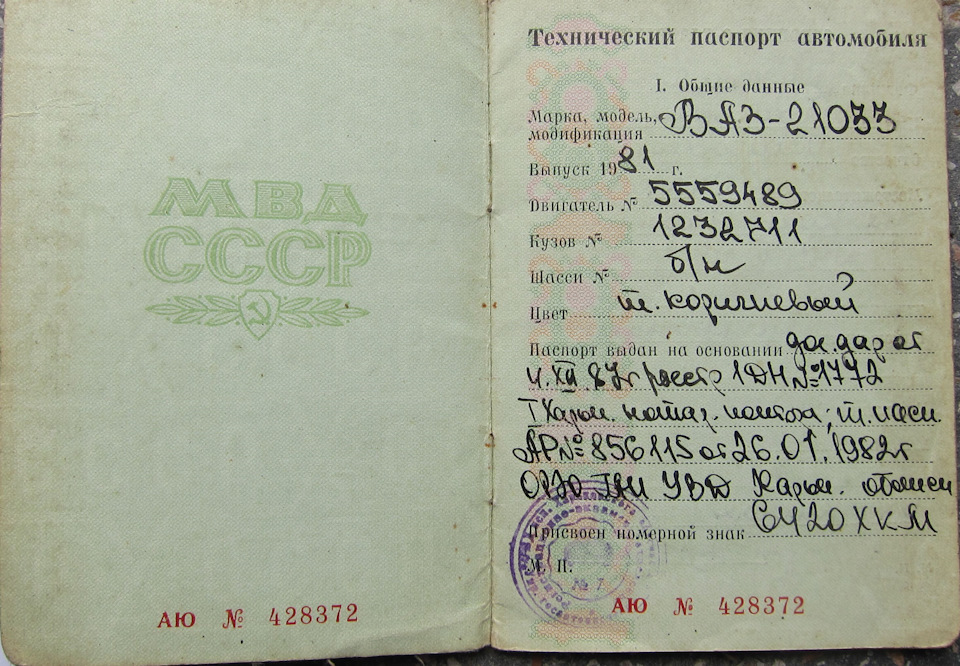 МВД
СССР
АЮ № 428372
Технический паспорт автомобиля
I. Общие данные
Марка, модель, ВАЗ-21033
модификация
Выпуск 1981 г.
Двигатель № 5559489
Кузов № 1232711
Шасси № б/н
Цвет т. коричневый
Паспорт выдан на основании дог. дар от
4. XII 87г реестр 1ДН №1772
I Харьк. нотар. контора; т. пасп.
АР № 856115 от 26.01.1982г
ОРЭО ГАИ УВД Харьк. области
Присвоен номерной знак С4420ХКМ
М. П.
№ 7
АЮ № 428372